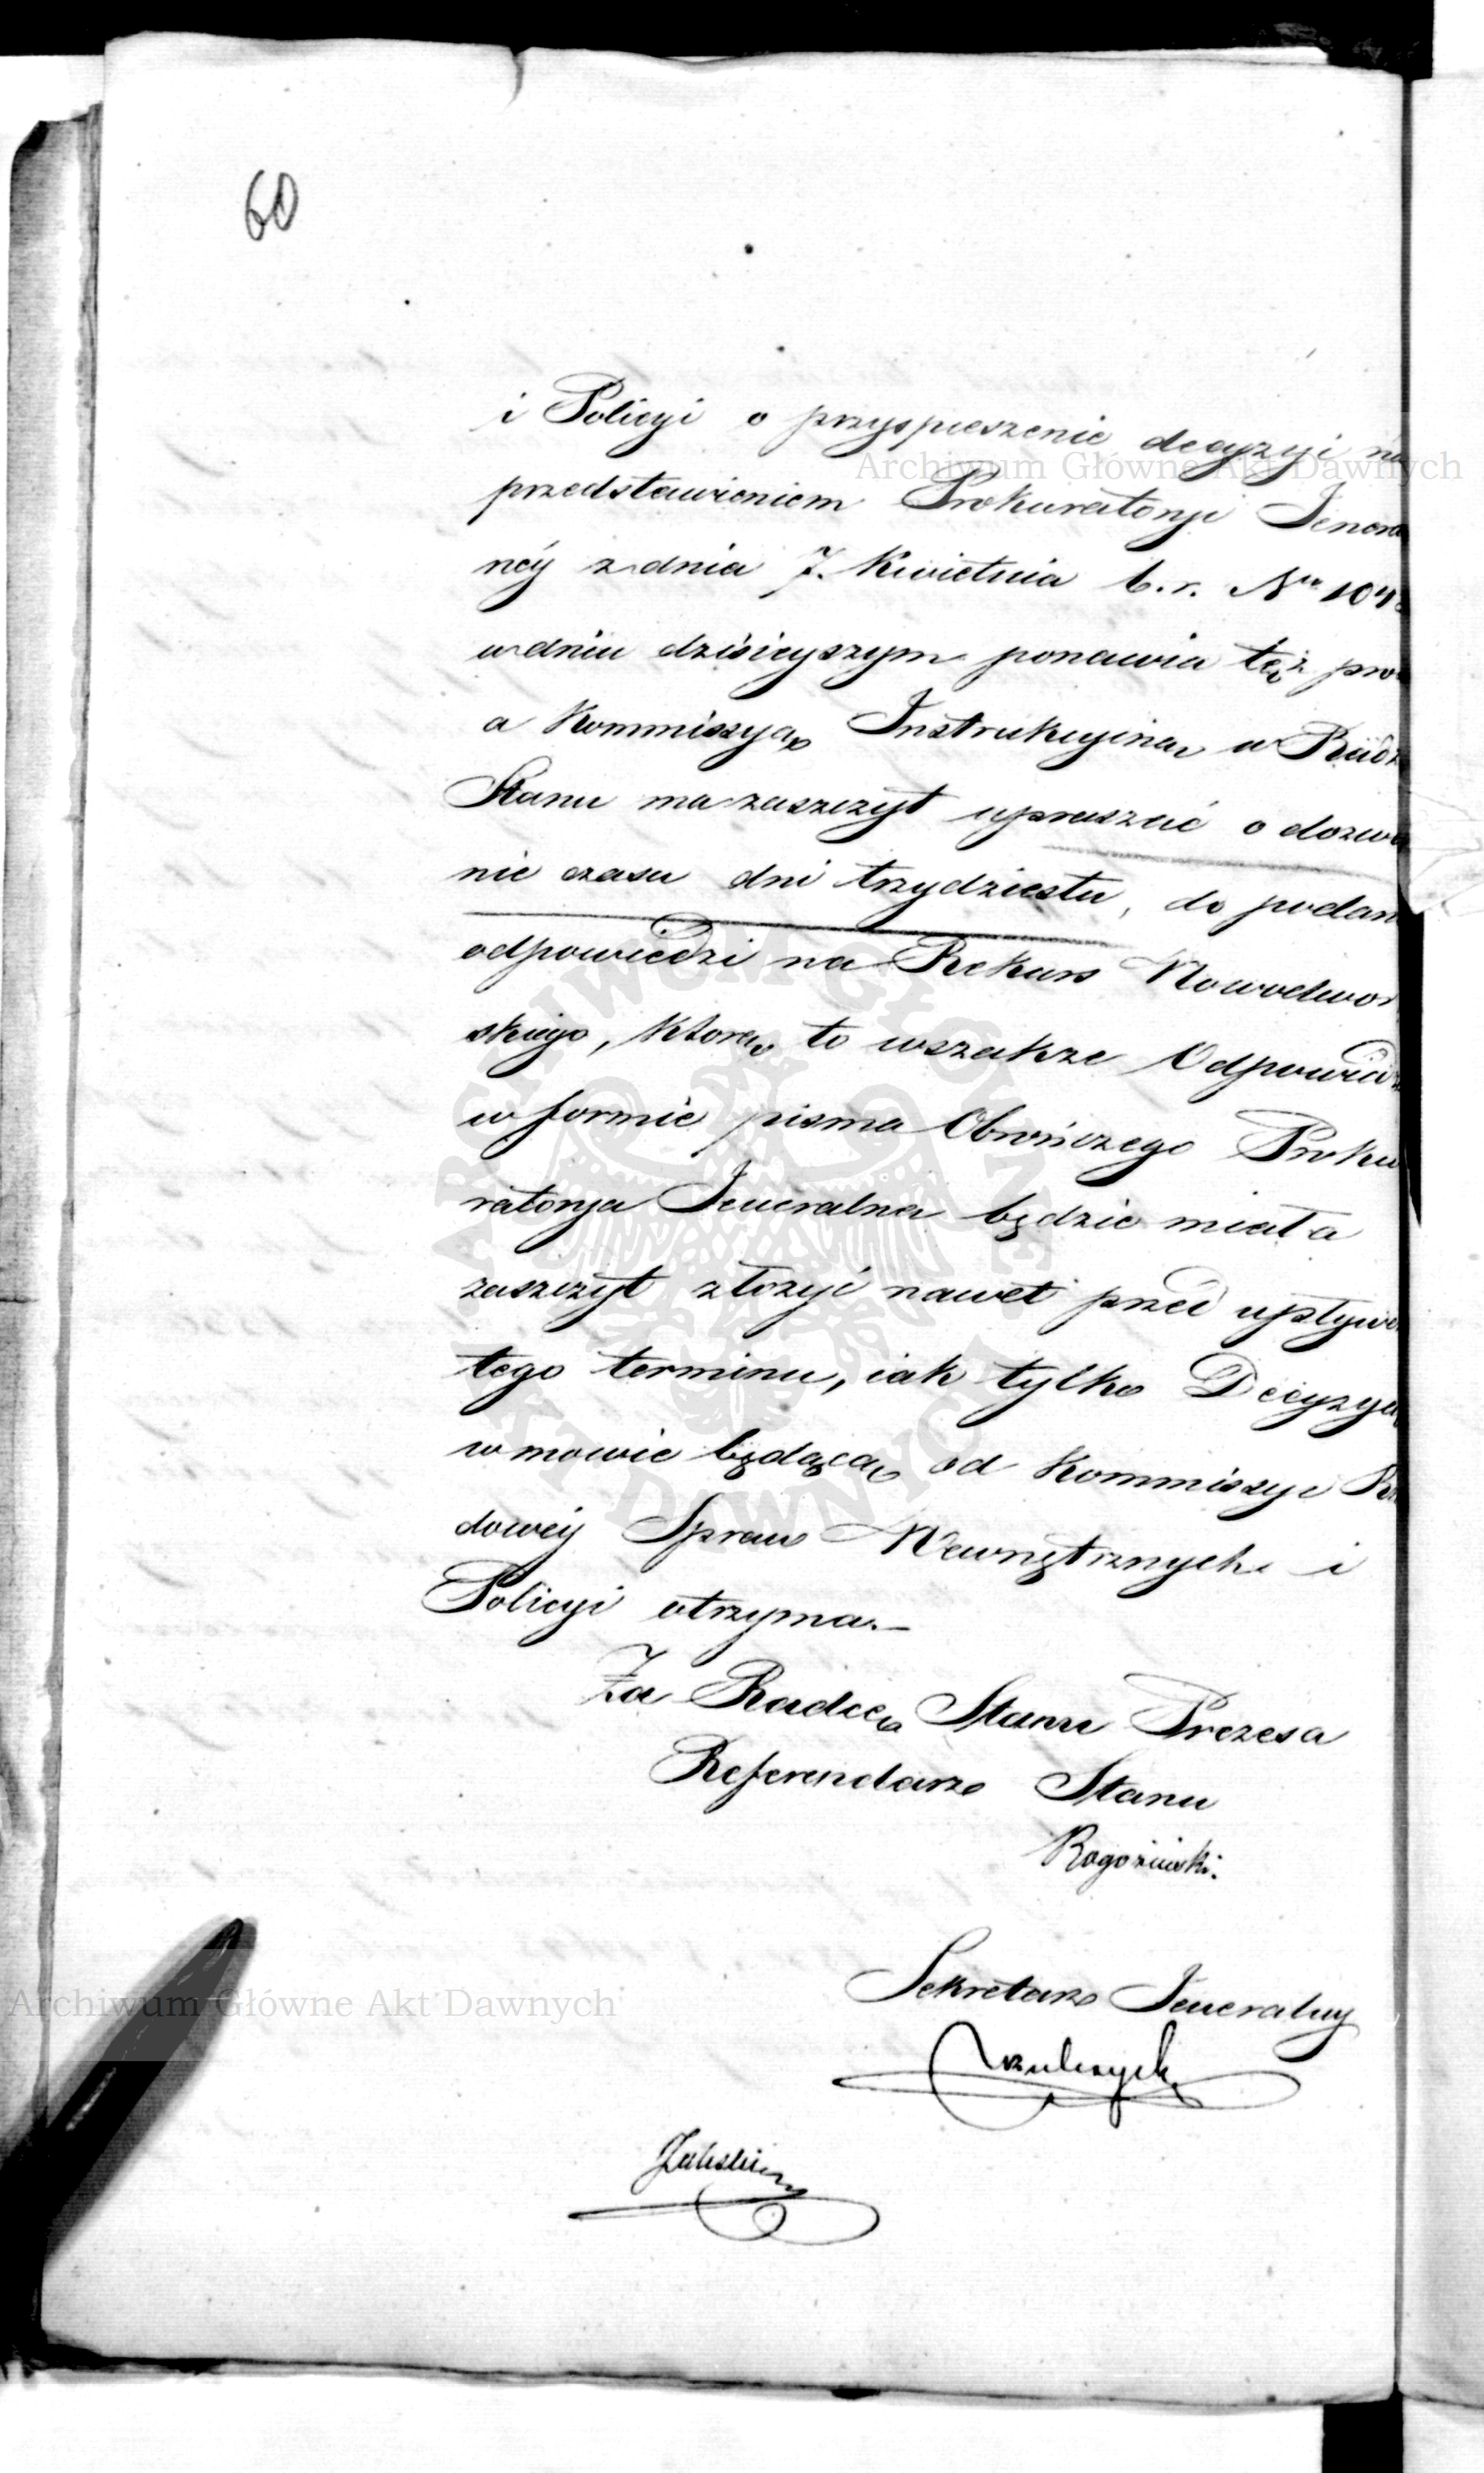 60
i Policyi o przyspieszenie decyzyi na
przedstawieniem Prokuratoryi Jenera
néy z dnia 7. Kwietnia b. r. Nro 104
w dniu dzisieyszym ponawia tęż pro
a Kommissyą Instrukcyiną w Radz
Stanu ma zaszczyt upraszać o dozwo
nie czasu dni trzydziestu, do podan
odpowiedzi na Rekurs Nowodwor
skiego, którą to wszakże Odpowiedz
w formie pisma Obrończego Proku
ratorya Jeneralna będzie miała
zaszczyt złożyć nawet przed upływe
tego terminu, iak tylko Decyzyą
w mowie będącą od Kommissyi Rzą
dowéy Spraw Wewnętrznych i
Policyi otrzyma.—
Za Radcę Stanu Prezesa
Referendarz Stanu
Rogoziński.
Sekretarz Jeneralny
Archiwum Główne Akt Dawnych
Archiwum Główne Akt Dawnych
ARCHIWUM GŁÓWNE AKT DAWNYCH